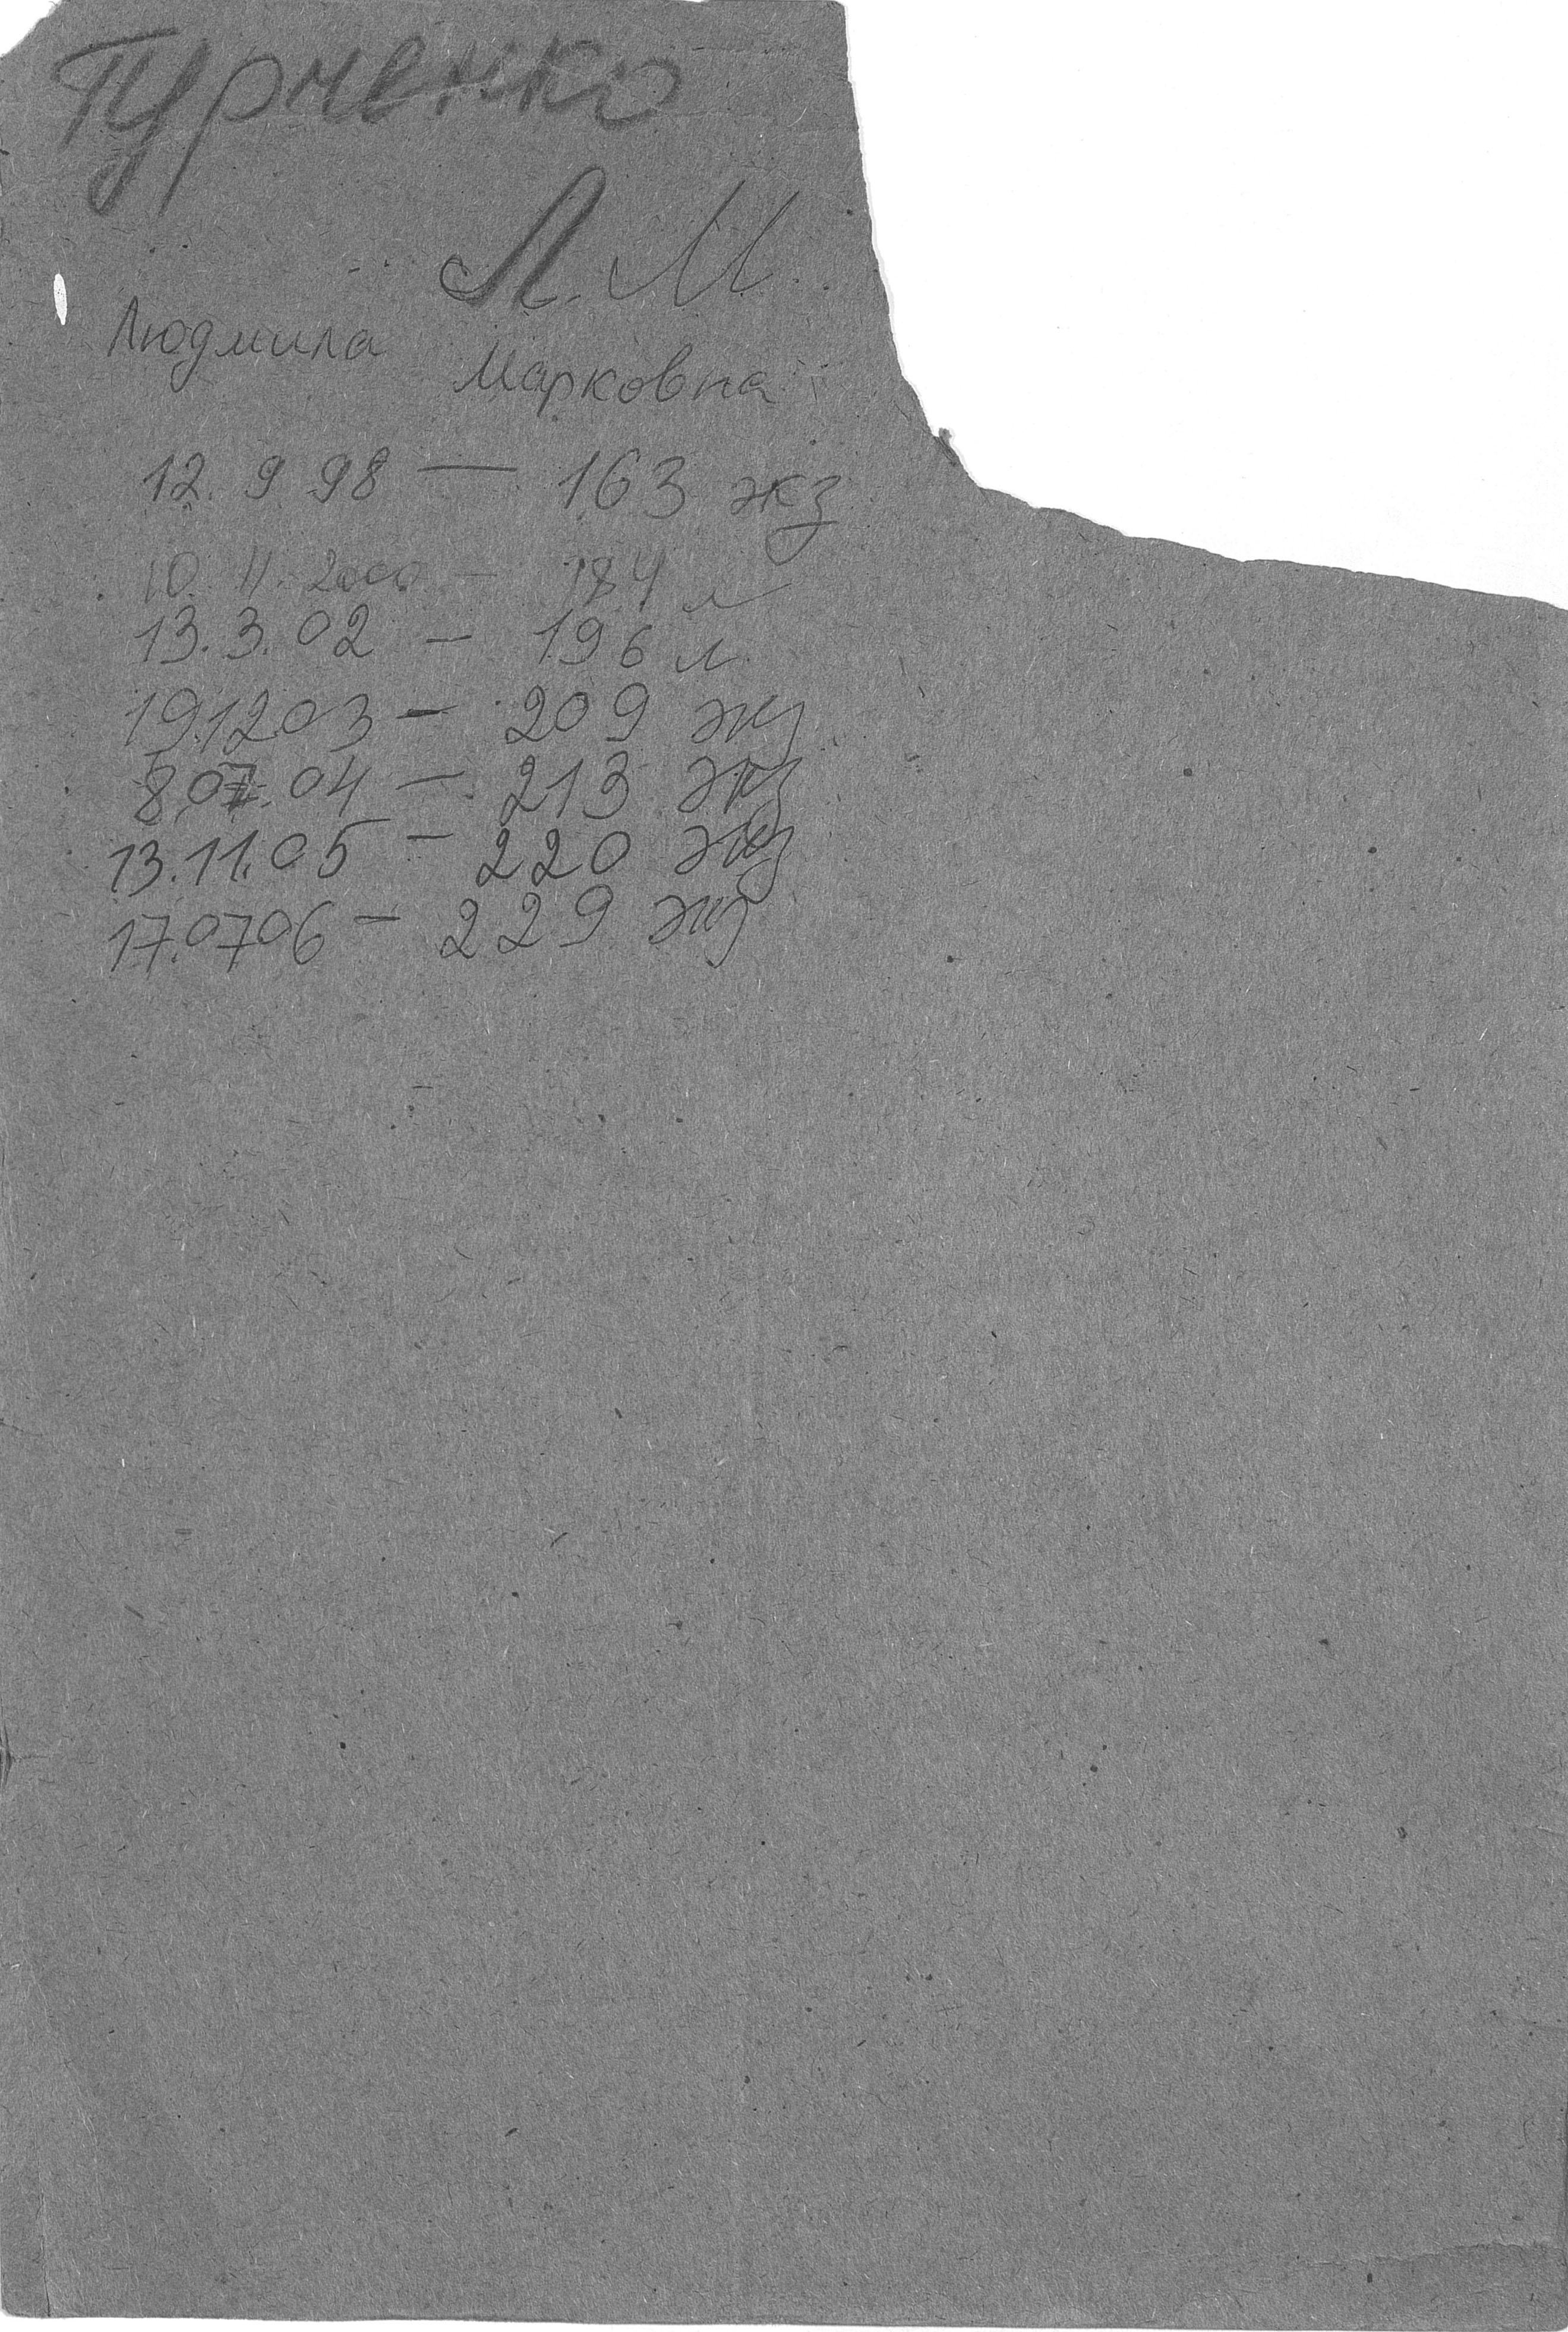 Гурченко
Л. М.
Людмила
Марковна
12. 9 98 — 163 экз
10. 11. 2000 - 184 л
13. 3. 02 - 196 л.
191203 - 209 экз
8.07.04 - 213 экз
13.11.05 - 220 экз
17.0706 - 229 экз